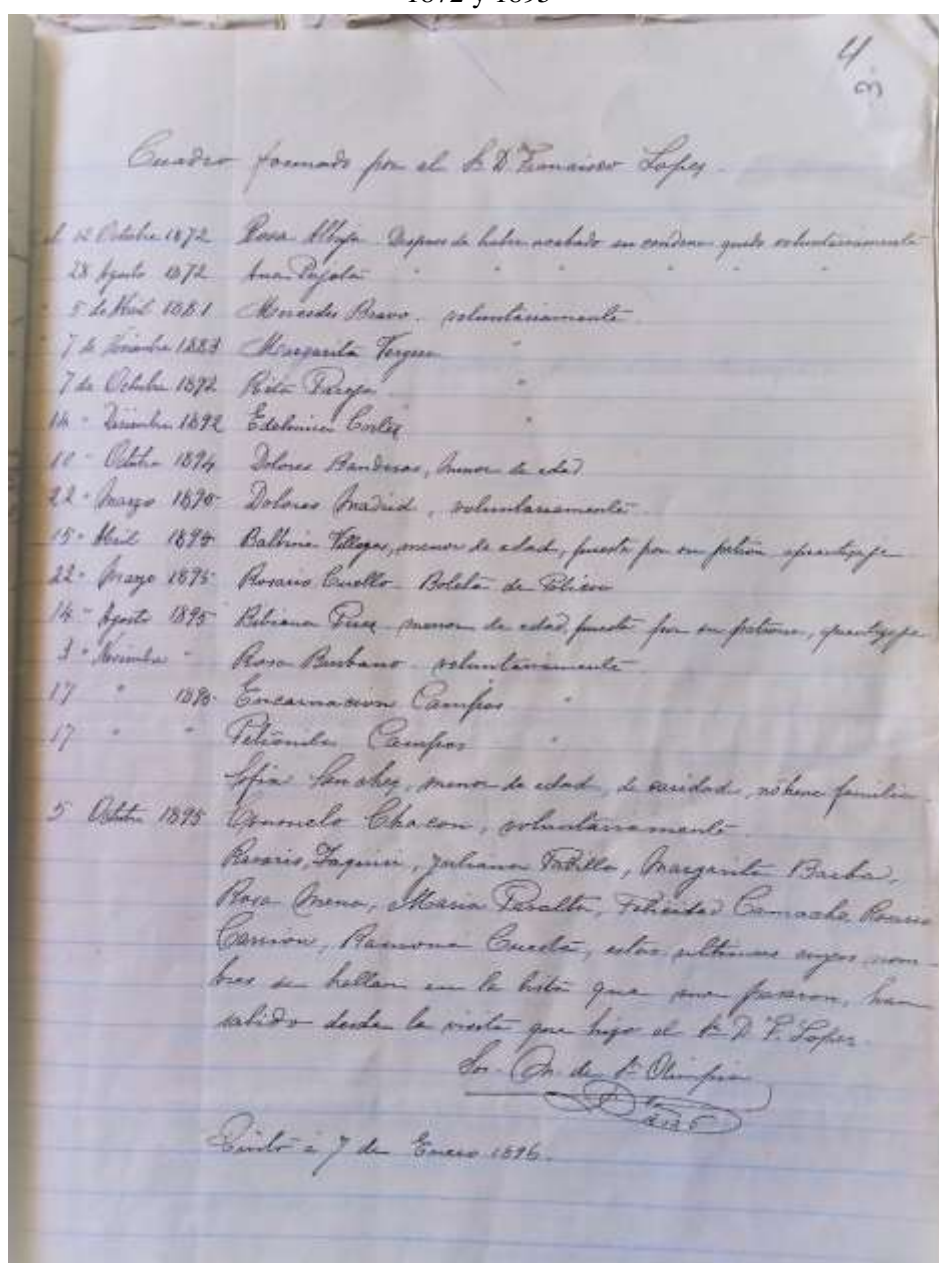 1872 y 1895
4
3
Cuadro formado por el Sr. D. Francisco Lopez.
el 12 Octubre 1872 Rosa Despues de haber acabado su condena quedo voluntariamente
28 Agosto 1872 Ana Pujota " " " " " "
" 5 de Abril 1881 Mercedes Bravo voluntariamente
7 de 1883 Margarita "
7 de Octubre 1892 Rita Pareja "
14 " Diciembre 1892 Cortez "
10 " Octubre 1894 Dolores Banderas, menor de edad
22 " Marzo Dolores Madrid, voluntariamente
15 " Abril Balbina Villegas, menor de edad, puesta por su patron
22 " 1895 Rosario Cuello Boleta de Policia
14 " Agosto 1895 Bibiana menor de edad, puesta por su patrona,
3 " Noviembre " Rosa Burbano voluntariamente
17 " Encarnacion Campos "
17 " " Petronila Campos "
Sofia Sanchez, menor de edad, de caridad, no tiene familia
5 Octubre 1895 Consuelo Chacon, voluntariamente
Rosario, Juliana Padilla, Margarita Barba,
Rosa Mena, Maria Peralta, Felicidad Camacho, Rosario
Carrion, Ramona Cuesta, estas ultimas cuyos nom-
bres se hallan en la lista que me pasaron, han
salido desde la visita que hizo el Sr. D. F. Lopez.
Sor. M. de Sta. Olimpia
Quito á 7 de Enero 1896.